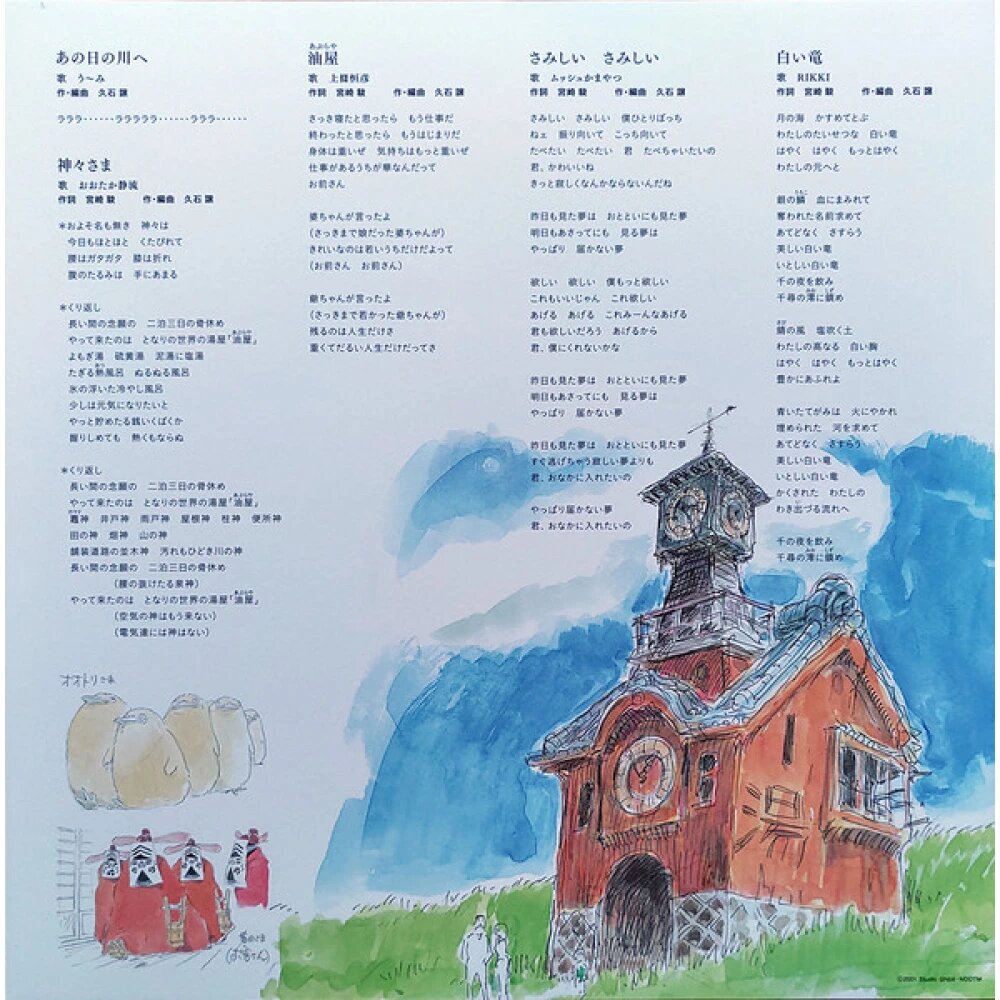 あの日の川へ
歌 う〜み
作・編曲 久石 譲
ラララ‥‥‥ラララララ‥‥‥ラララ‥‥‥
神々さま
歌 おおたか静流
作詞 宮崎 駿 作・編曲 久石 譲
*およそ名も無き 神々は
今日もほとほと くたびれて
腰はガタガタ 膝は折れ
腹のたるみは 手にあまる
*くり返し
長い間の念願の 二泊三日の骨休め
やって来たのは となりの世界の湯屋「油屋」
よもぎ湯 硫黄湯 泥湯に塩湯
たぎる熱風呂 ぬるぬる風呂
氷の浮いた冷やし風呂
少しは元気になりたいと
やっと貯めたる銭いくばくか
握りしめても 熱くもならぬ
*くり返し
長い間の念願の 二泊三日の骨休め
やって来たのは となりの世界の湯屋「油屋」
竈神 井戸神 雨戸神 屋根神 柱神 便所神
田の神 畑神 山の神
舗装道路の並木神 汚れもひどき川の神
長い間の念願の 二泊三日の骨休め
(腰の抜けたる泉神)
やって来たのは となりの世界の湯屋「油屋」
(空気の神はもう来ない)
(電気達には神はない)
オオトリさま
あぶらや
油屋
歌 上條恒彦
作詞 宮崎 駿 作・編曲 久石 譲
さっき寝たと思ったら もう仕事だ
終わったと思ったら もうはじまりだ
身体は重いぜ 気持ちはもっと重いぜ
仕事があるうちが華なんだって
お前さん
婆ちゃんが言ったよ
(さっきまで娘だった婆ちゃんが)
きれいなのは若いうちだけだよって
(お前さん お前さん)
爺ちゃんが言ったよ
(さっきまで若かった爺ちゃんが)
残るのは人生だけさ
重くてだるい人生だけだってさ
さみしい さみしい
歌 ムッシュかまやつ
作詞 宮崎 駿 作・編曲 久石 譲
さみしい さみしい 僕ひとりぼっち
ねェ 振り向いて こっち向いて
たべたい たべたい 君 たべちゃいたいの
君、かわいいね
きっと寂しくなんかならないんだね
昨日も見た夢は おとといにも見た夢
明日もあさってにも 見る夢は
やっぱり 届かない夢
欲しい 欲しい 僕もっと欲しい
これもいいじゃん これ欲しい
あげる あげる これみーんなあげる
君も欲しいだろう あげるから
君、僕にくれないかな
昨日も見た夢は おとといにも見た夢
明日もあさってにも 見る夢は
やっぱり 届かない夢
昨日も見た夢は おとといにも見た夢
すぐ逃げちゃう寂しい夢よりも
君、おなかに入れたいの
やっぱり届かない夢
君、おなかに入れたいの
白い竜
歌 RIKKI
作詞 宮崎 駿 作・編曲 久石 譲
月の海 かすめてとぶ
わたしのたいせつな 白い竜
はやく はやく もっとはやく
わたしの元へと
銀の鱗 血にまみれて
奪われた名前求めて
あてどなく さすらう
美しい白い竜
いとしい白い竜
千の夜を飲み
千尋の澪に鎮め
錆の風 塩吹く土
わたしの高なる 白い胸
はやく はやく もっとはやく
豊かにあふれよ
青いたてがみは 火にやかれ
埋められた 河を求めて
あてどなく さすらう
美しい白い竜
いとしい白い竜
かくされた わたしの
わき出づる流れへ
千の夜を飲み
千尋の澪に鎮め
©2001 Studio Ghibli・NDDTM